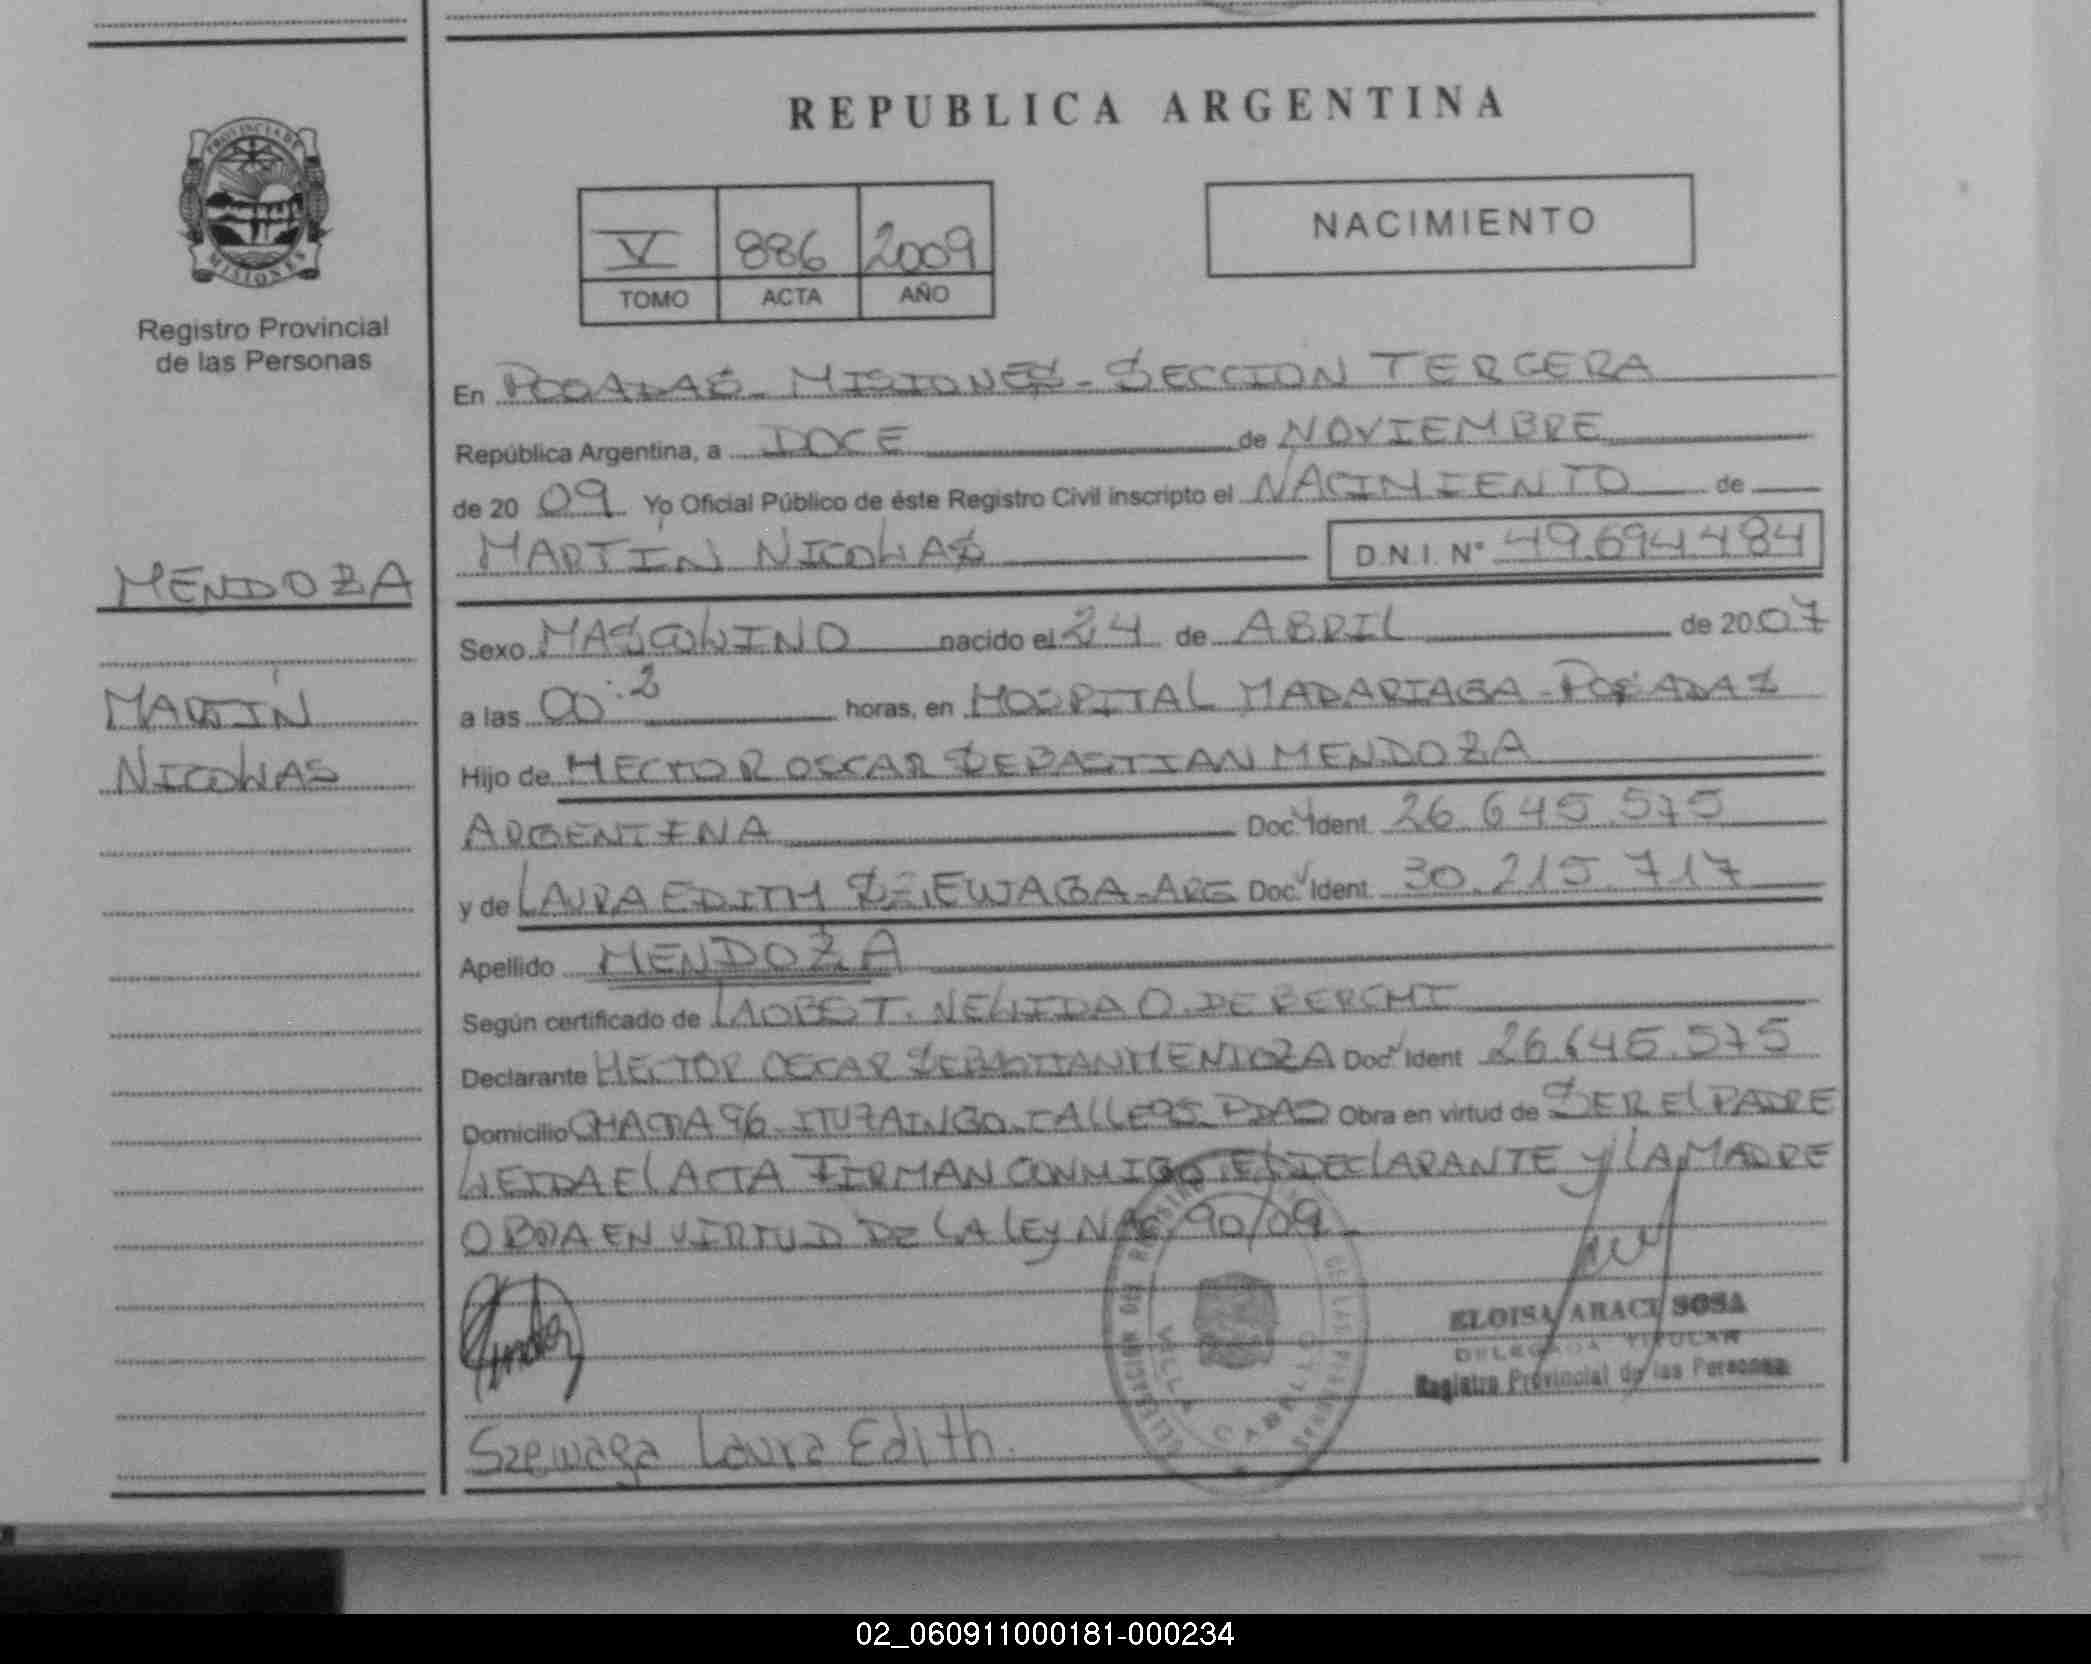 REPUBLICA ARGENTINA
PROVINCIA DE
MISIONES
Registro Provincial
de las Personas
V 886 2009
TOMO ACTA AÑO
NACIMIENTO
En POSADAS - MISIONES - SECCION TERCERA
República Argentina, a DOCE de NOVIEMBRE
de 20 09 Yo Oficial Público de éste Registro Civil inscripto el NACIMIENTO de
MARTIN NICOLAS D.N.I. N° 49.694.484
MENDOZA
MARTIN
NICOLAS
Sexo MASCULINO nacido el 24 de ABRIL de 2007
a las horas, en HOSPITAL MADARIAGA - POSADAS
Hijo de HECTOR OSCAR SEBASTIAN MENDOZA
ARGENTINA Doc. Ident. 26.645.575
y de LAURA EDITH SZEWAGA - ARG Doc. Ident. 30.215.717
Apellido MENDOZA
Según certificado de LA OBST. NELIDA O. DE BERCHI
Declarante HECTOR OSCAR SEBASTIAN MENDOZA Doc. Ident 26.645.575
Domicilio CHACRA 96 ITUZAINGO CALLE 95 PDAS Obra en virtud de SER EL PADRE
LEIDA EL ACTA FIRMAN CONMIGO EL DECLARANTE Y LA MADRE
OBRA EN VIRTUD DE LA LEY NAC 90/09
ELOISA ARACI SOSA
DELEGADA TITULAR
Registro Provincial de las Personas
VILLA CABELLO
Szewaga Laura Edith.
02_060911000181-000234